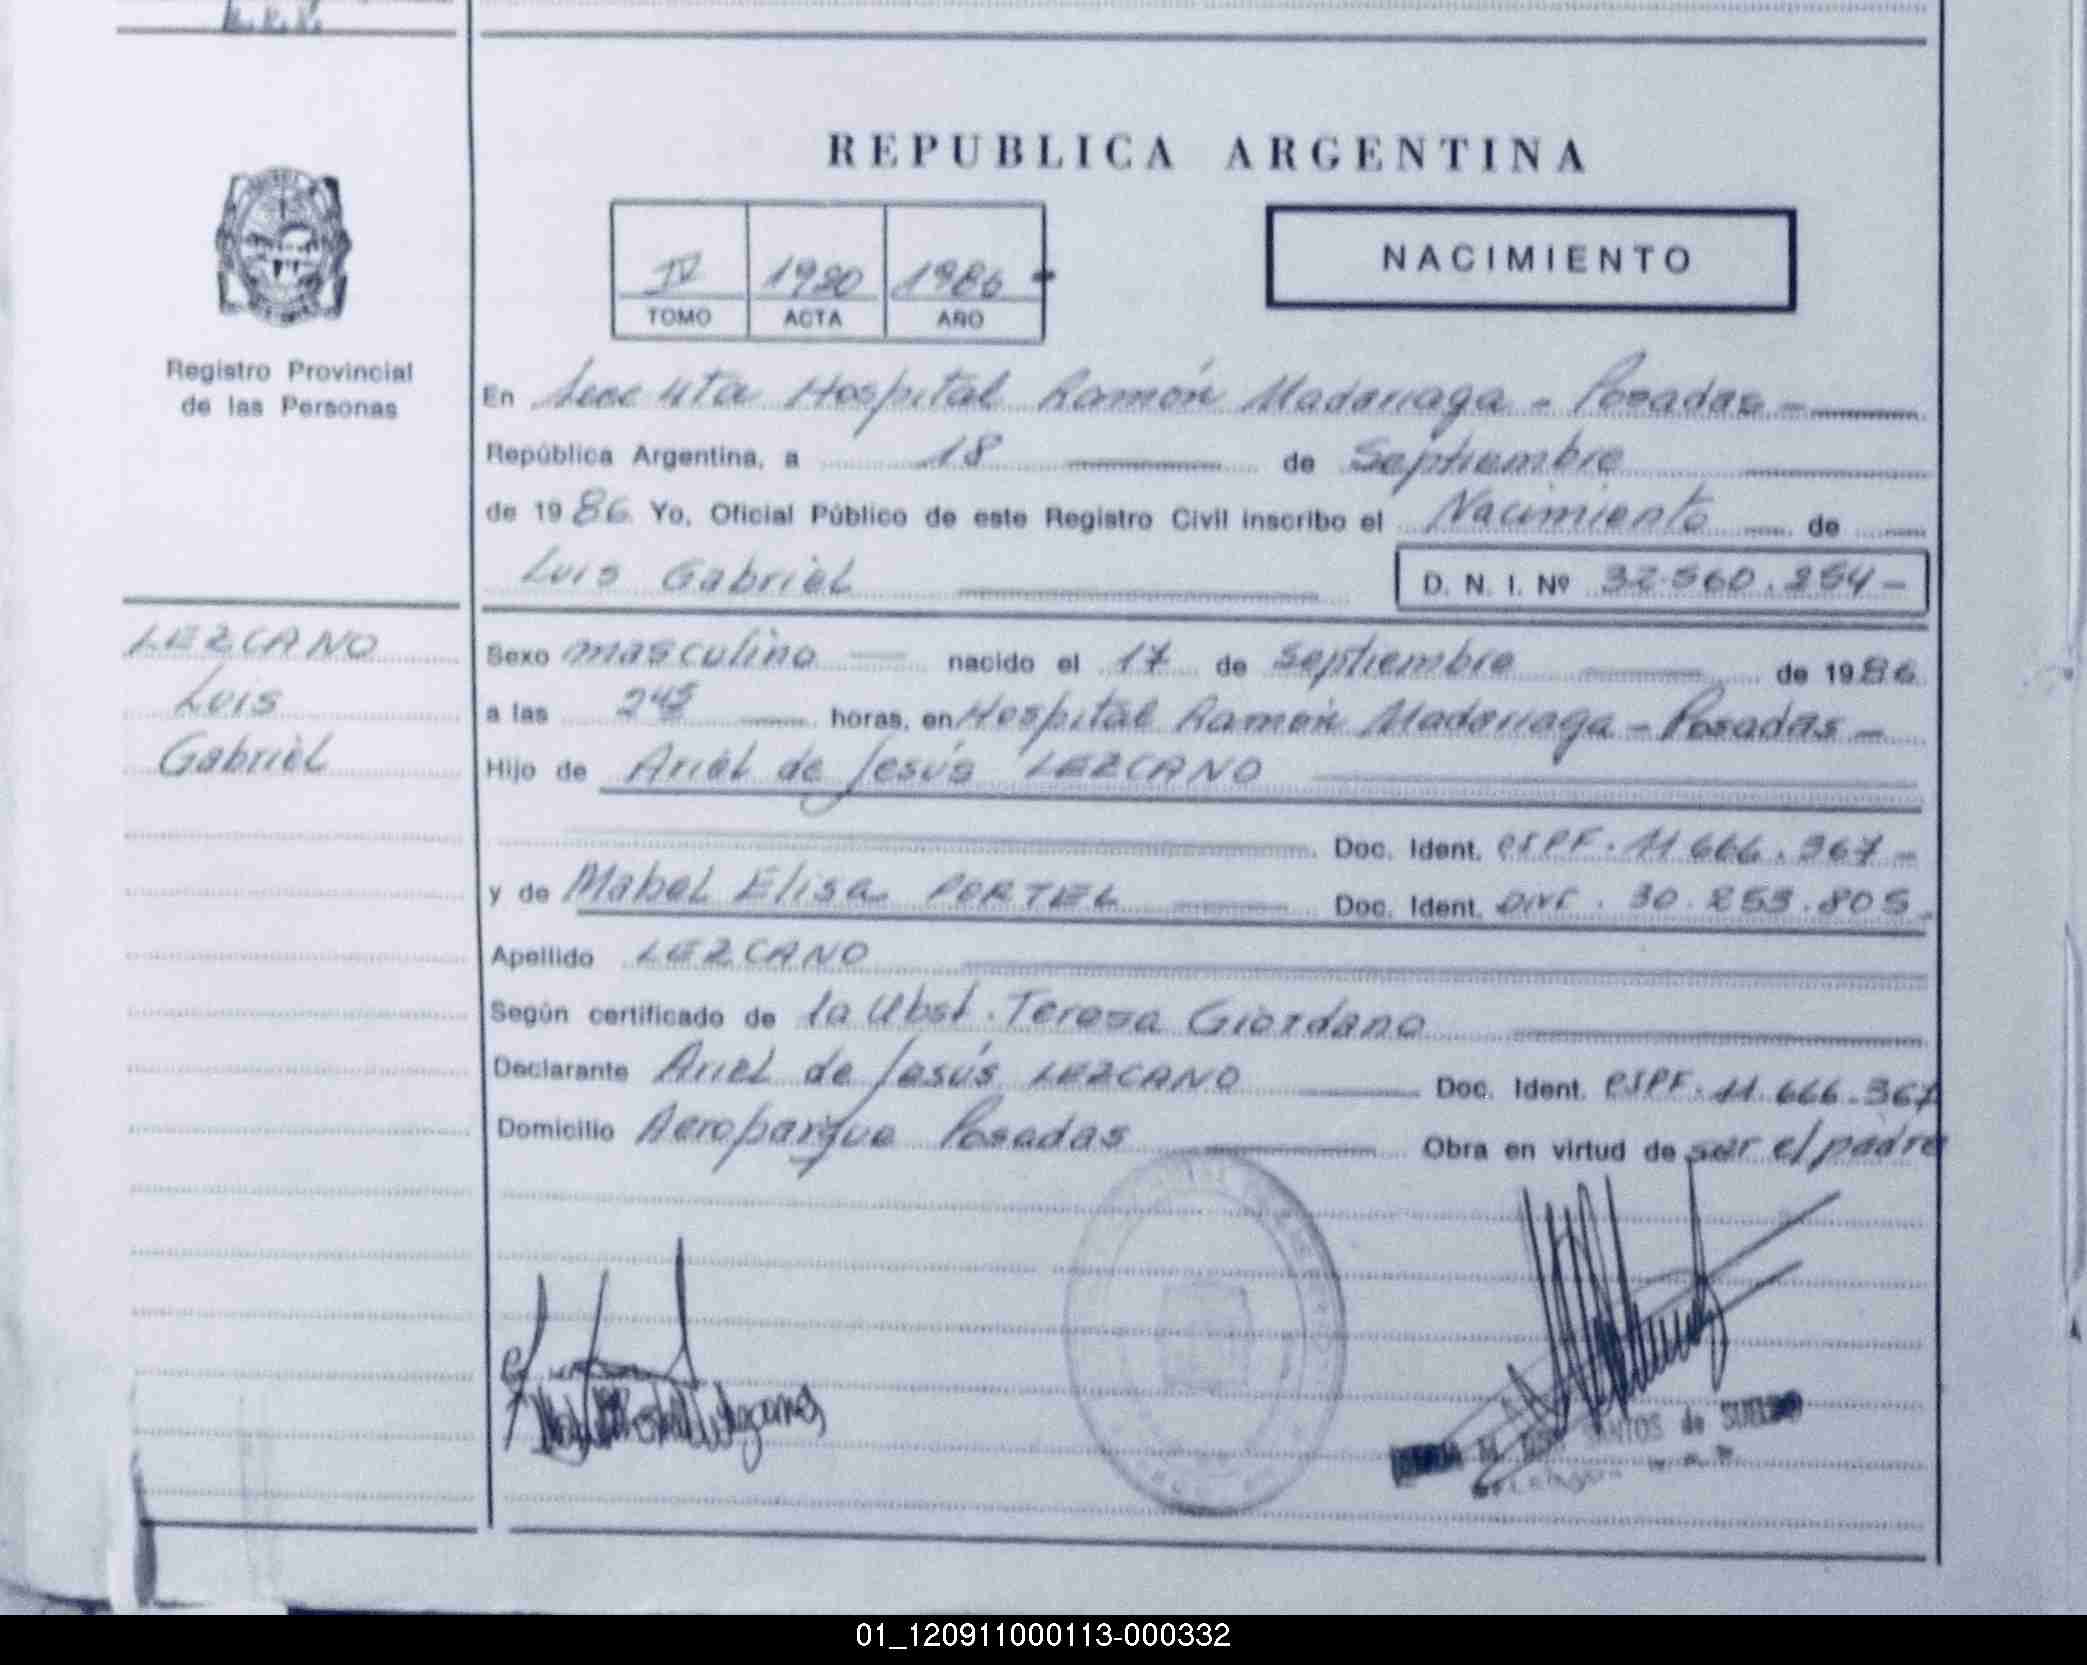 REPUBLICA ARGENTINA
IV 1980 1986
TOMO ACTA AÑO
NACIMIENTO
Registro Provincial
de las Personas
En Secc 4ta Hospital Ramón Madariaga - Posadas -
República Argentina, a 18 de Septiembre
de 1986 Yo, Oficial Público de este Registro Civil inscribo el Nacimiento de
Luis Gabriel D. N. I. Nº 32.560.254-
LEZCANO
Luis
Gabriel
Sexo masculino nacido el 17 de Septiembre de 1986
a las 2 45 horas, en Hospital Ramón Madariaga - Posadas -
Hijo de Ariel de Jesús LEZCANO
Doc. Ident. 11.666.367-
y de Mabel Elisa PERTEL Doc. Ident. 30.253.805.
Apellido LEZCANO
Según certificado de la Obst. Teresa Giordano
Declarante Ariel de Jesús LEZCANO Doc. Ident. 11.666.367
Domicilio Aeroparque Posadas Obra en virtud de ser el padre
SANTOS de
01_120911000113-000332